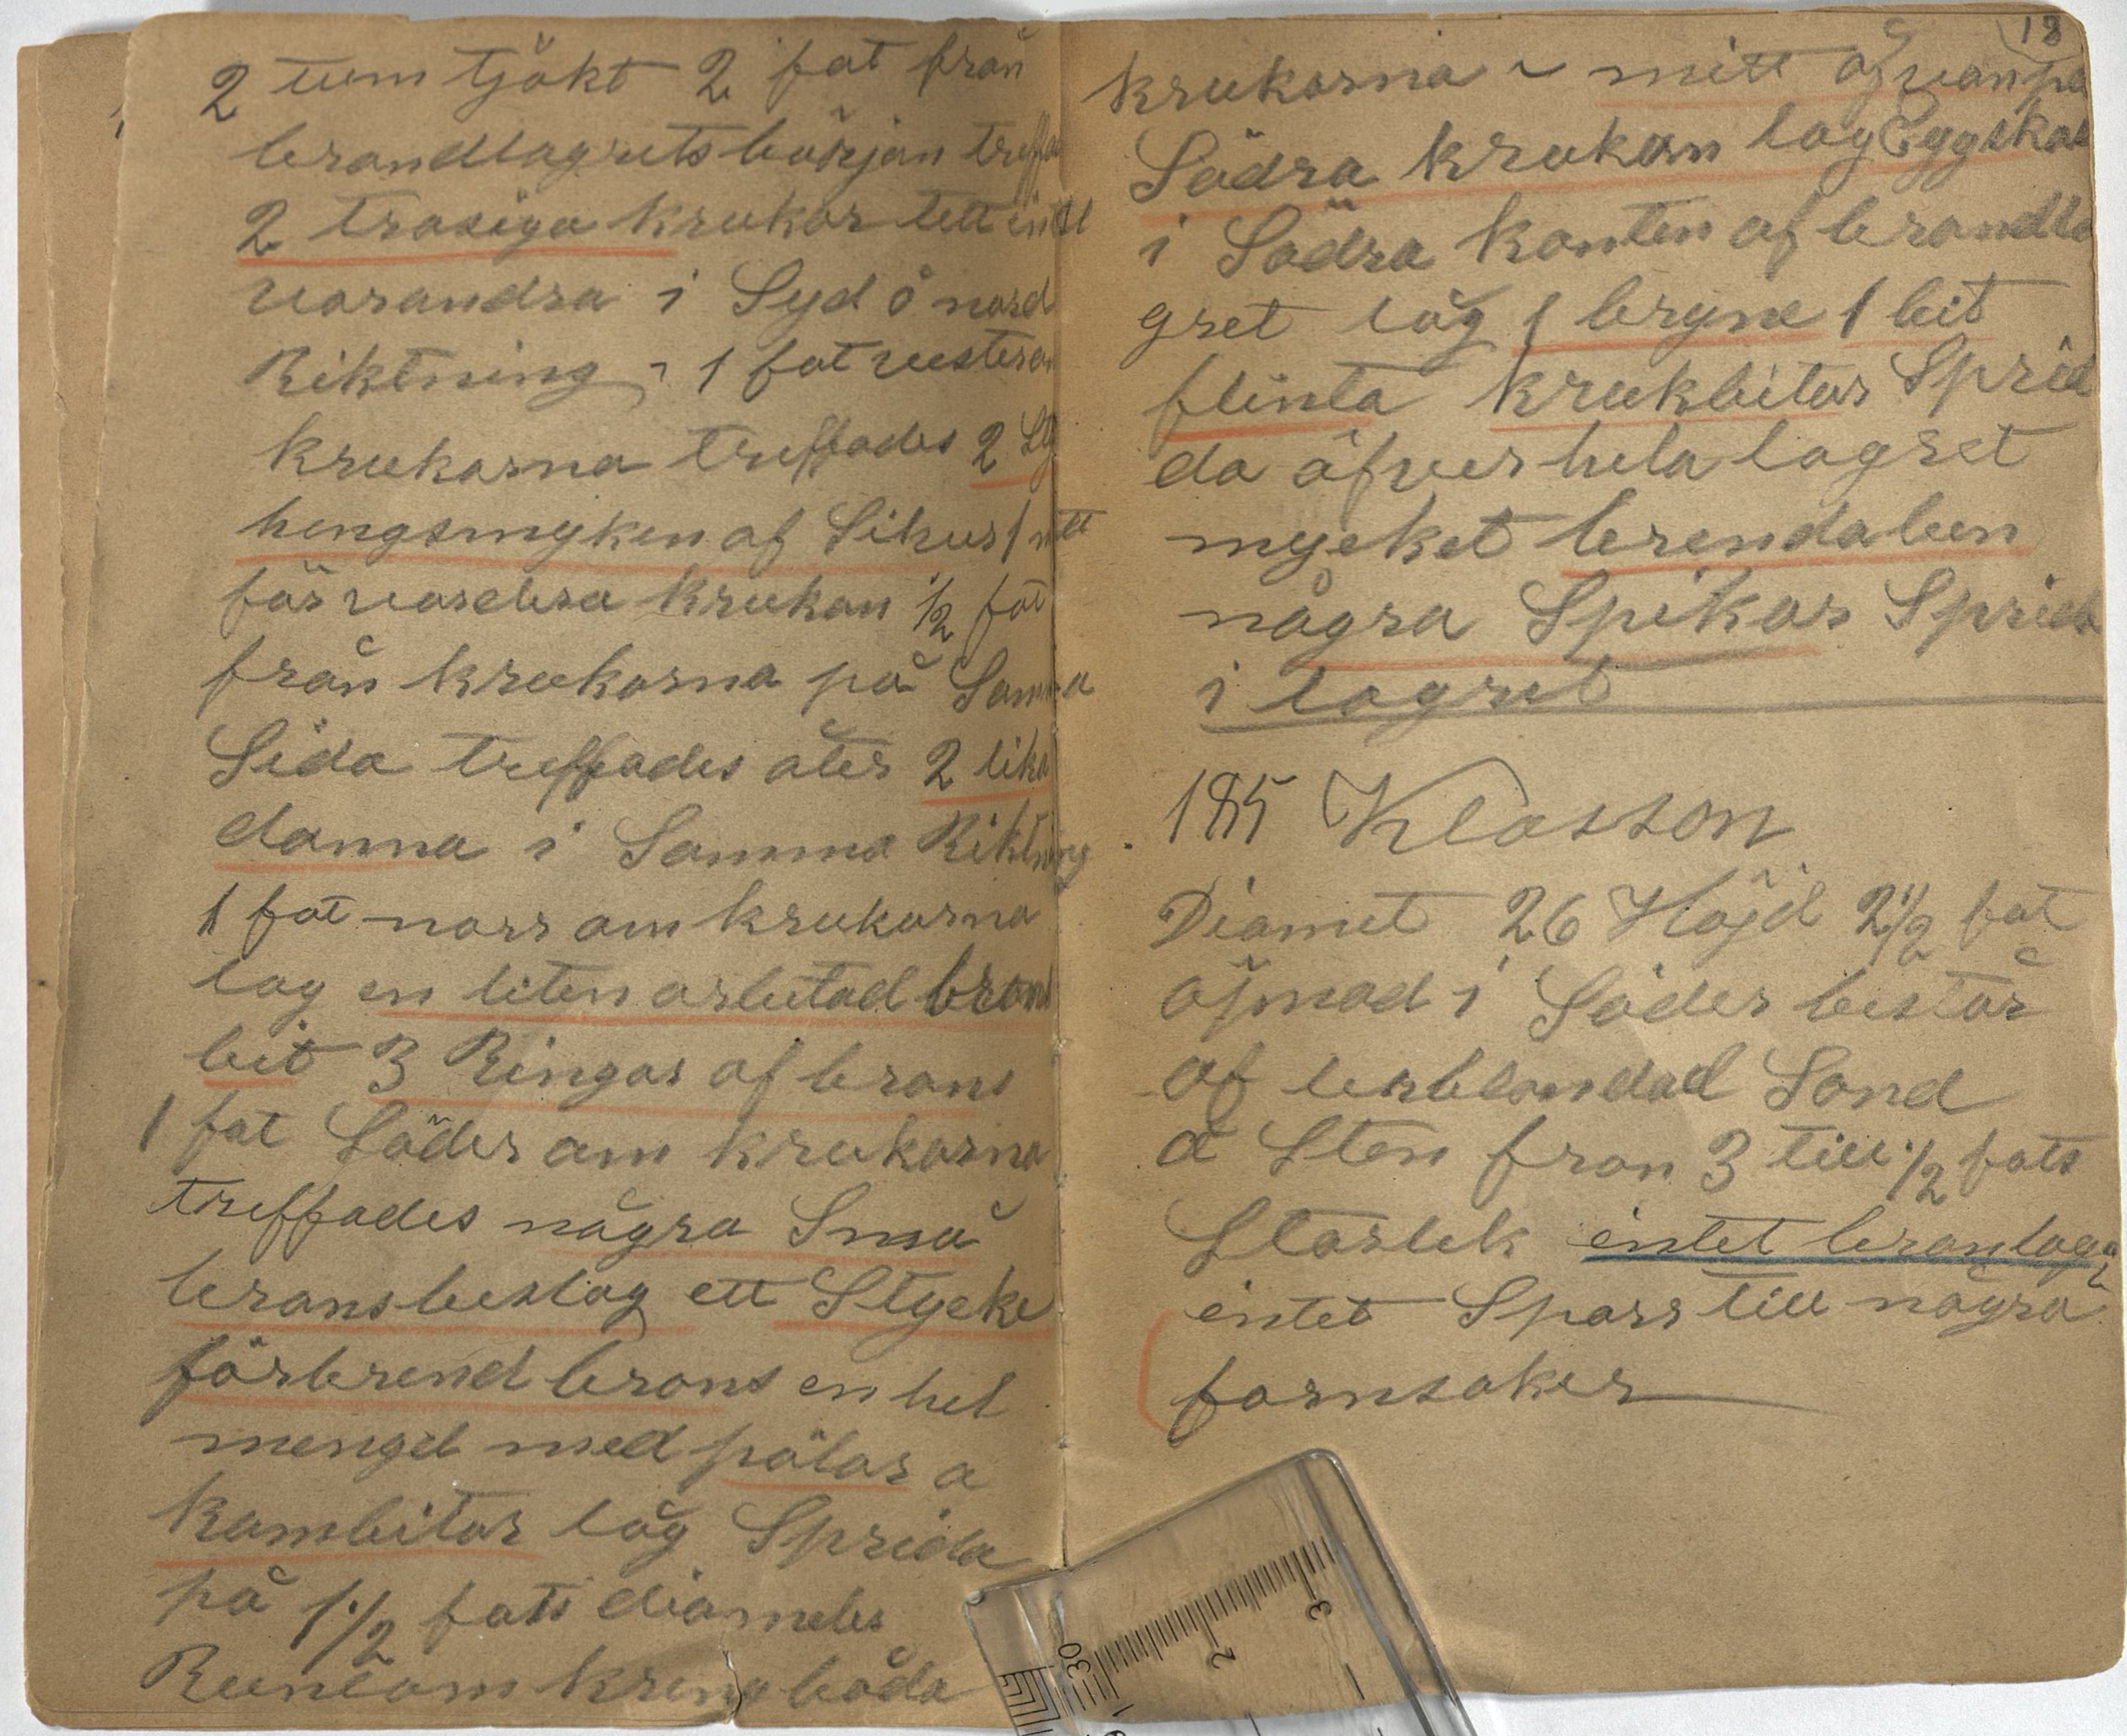 2 tum tjökt 2 fot från
brandlagrets början treffa
2 trasiga krukor tett intil
varandra i Syd ö nord
Riktning 1 fot vesterom
krukorna treffades 2 St
hengsmyken af Silver 1 mitt
för vardera krukan 1/2 fot
från krukorna på Samma
Sida treffades åter 2 lika
danna i Samma Riktning
1 fot norr om krukorna
lag en liten arbetad brons
bit 3 Ringar af brons
1 fot Söder om krukorna
treffades några Små
bronsbeslag ett Stycke
förbrend brons en hel
mengd med pälor a
kambitar låg Sprida
på 1 1/2 fots diameter
Runtom kring båda
18
krukorna mitt ofvanpå
Södra krukan lag Eggskal
i Södra kanten af brandla
gret låg 1 bryne 1 bit
flinta krukbitar Sprid
da öfver hela lagret
myeket brendaben
några Spikar Sprida
i lagret
185 Klasson
Diamet 26 Höjd 2 1/2 fot
öfnad i Söder består
af lerblandad Sand
a Sten fron 3 till 1/2 fots
Storlek intet branlager
intet Sparr till några
fornsaker
30
2
3